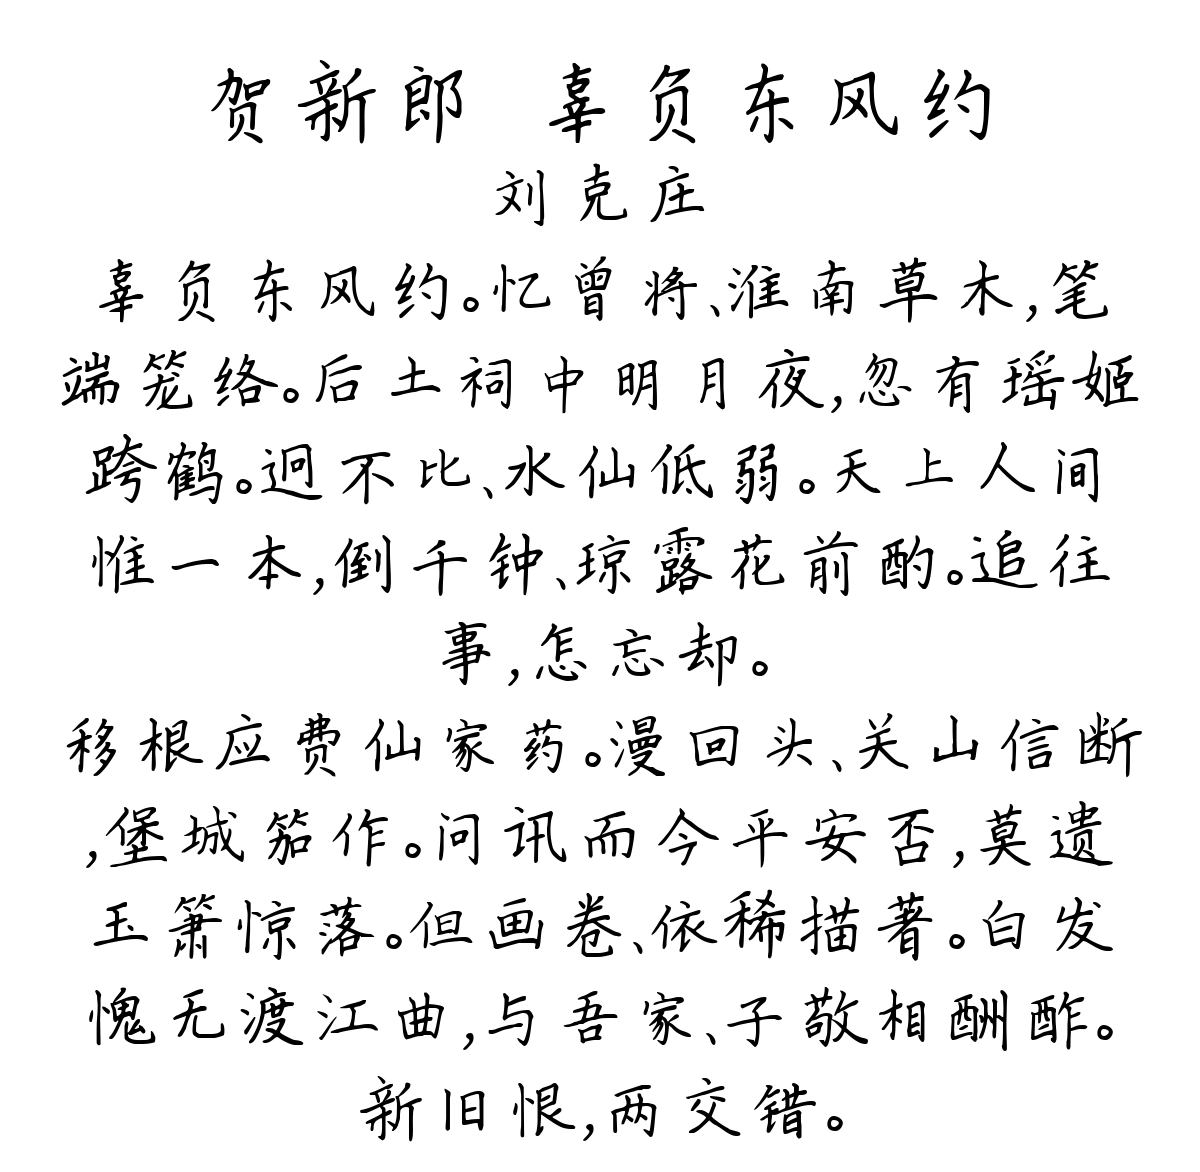 贺新郎 辜负东风约
刘克庄
辜负东风约。忆曾将、淮南草木,笔
端笼络。后土祠中明月夜,忽有瑶姬
跨鹤。迥不比、水仙低弱。天上人间
惟一本,倒千钟、琼露花前酌。追往
事,怎忘却。
移根应费仙家药。漫回头、关山信断
,堡城笳作。问讯而今平安否,莫遗
玉箫惊落。但画卷、依稀描著。白发
愧无渡江曲,与吾家、子敬相酬酢。
新旧恨,两交错。